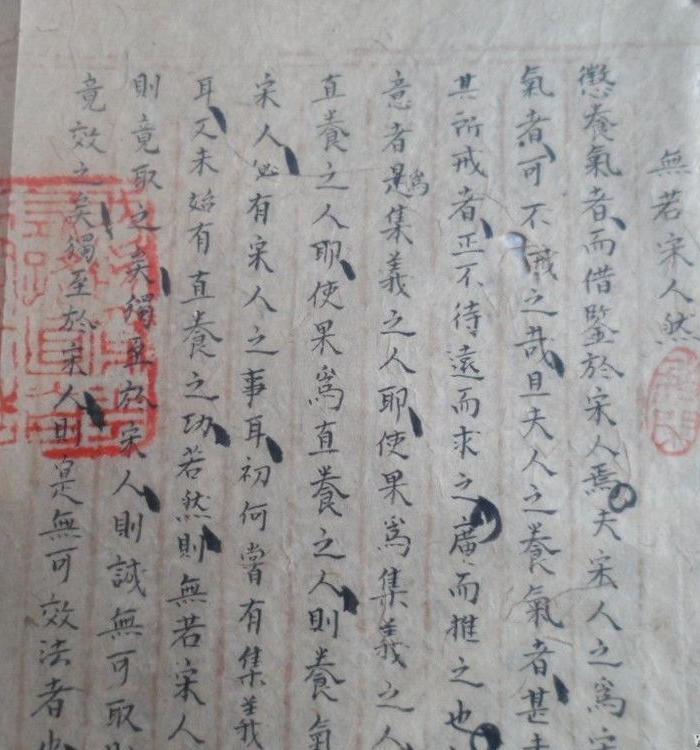 無若宋人然
懲養氣者而借鑒於宋人焉夫宋人之為宋
氣者可不戒之哉且夫人之養氣者甚
其所戒者正不待遠而求之廣而推之也
意者是為集義之人耶使果為集義之人
直養之人耶使果為直養之人則養氣
宋人必有宋人之事耳初何嘗有集義
耳又未始有直養之功若然則無若宋人
則竟取之矣獨至於宋人則誠無可取
竟效之矣獨至於宋人則是無可效法者也